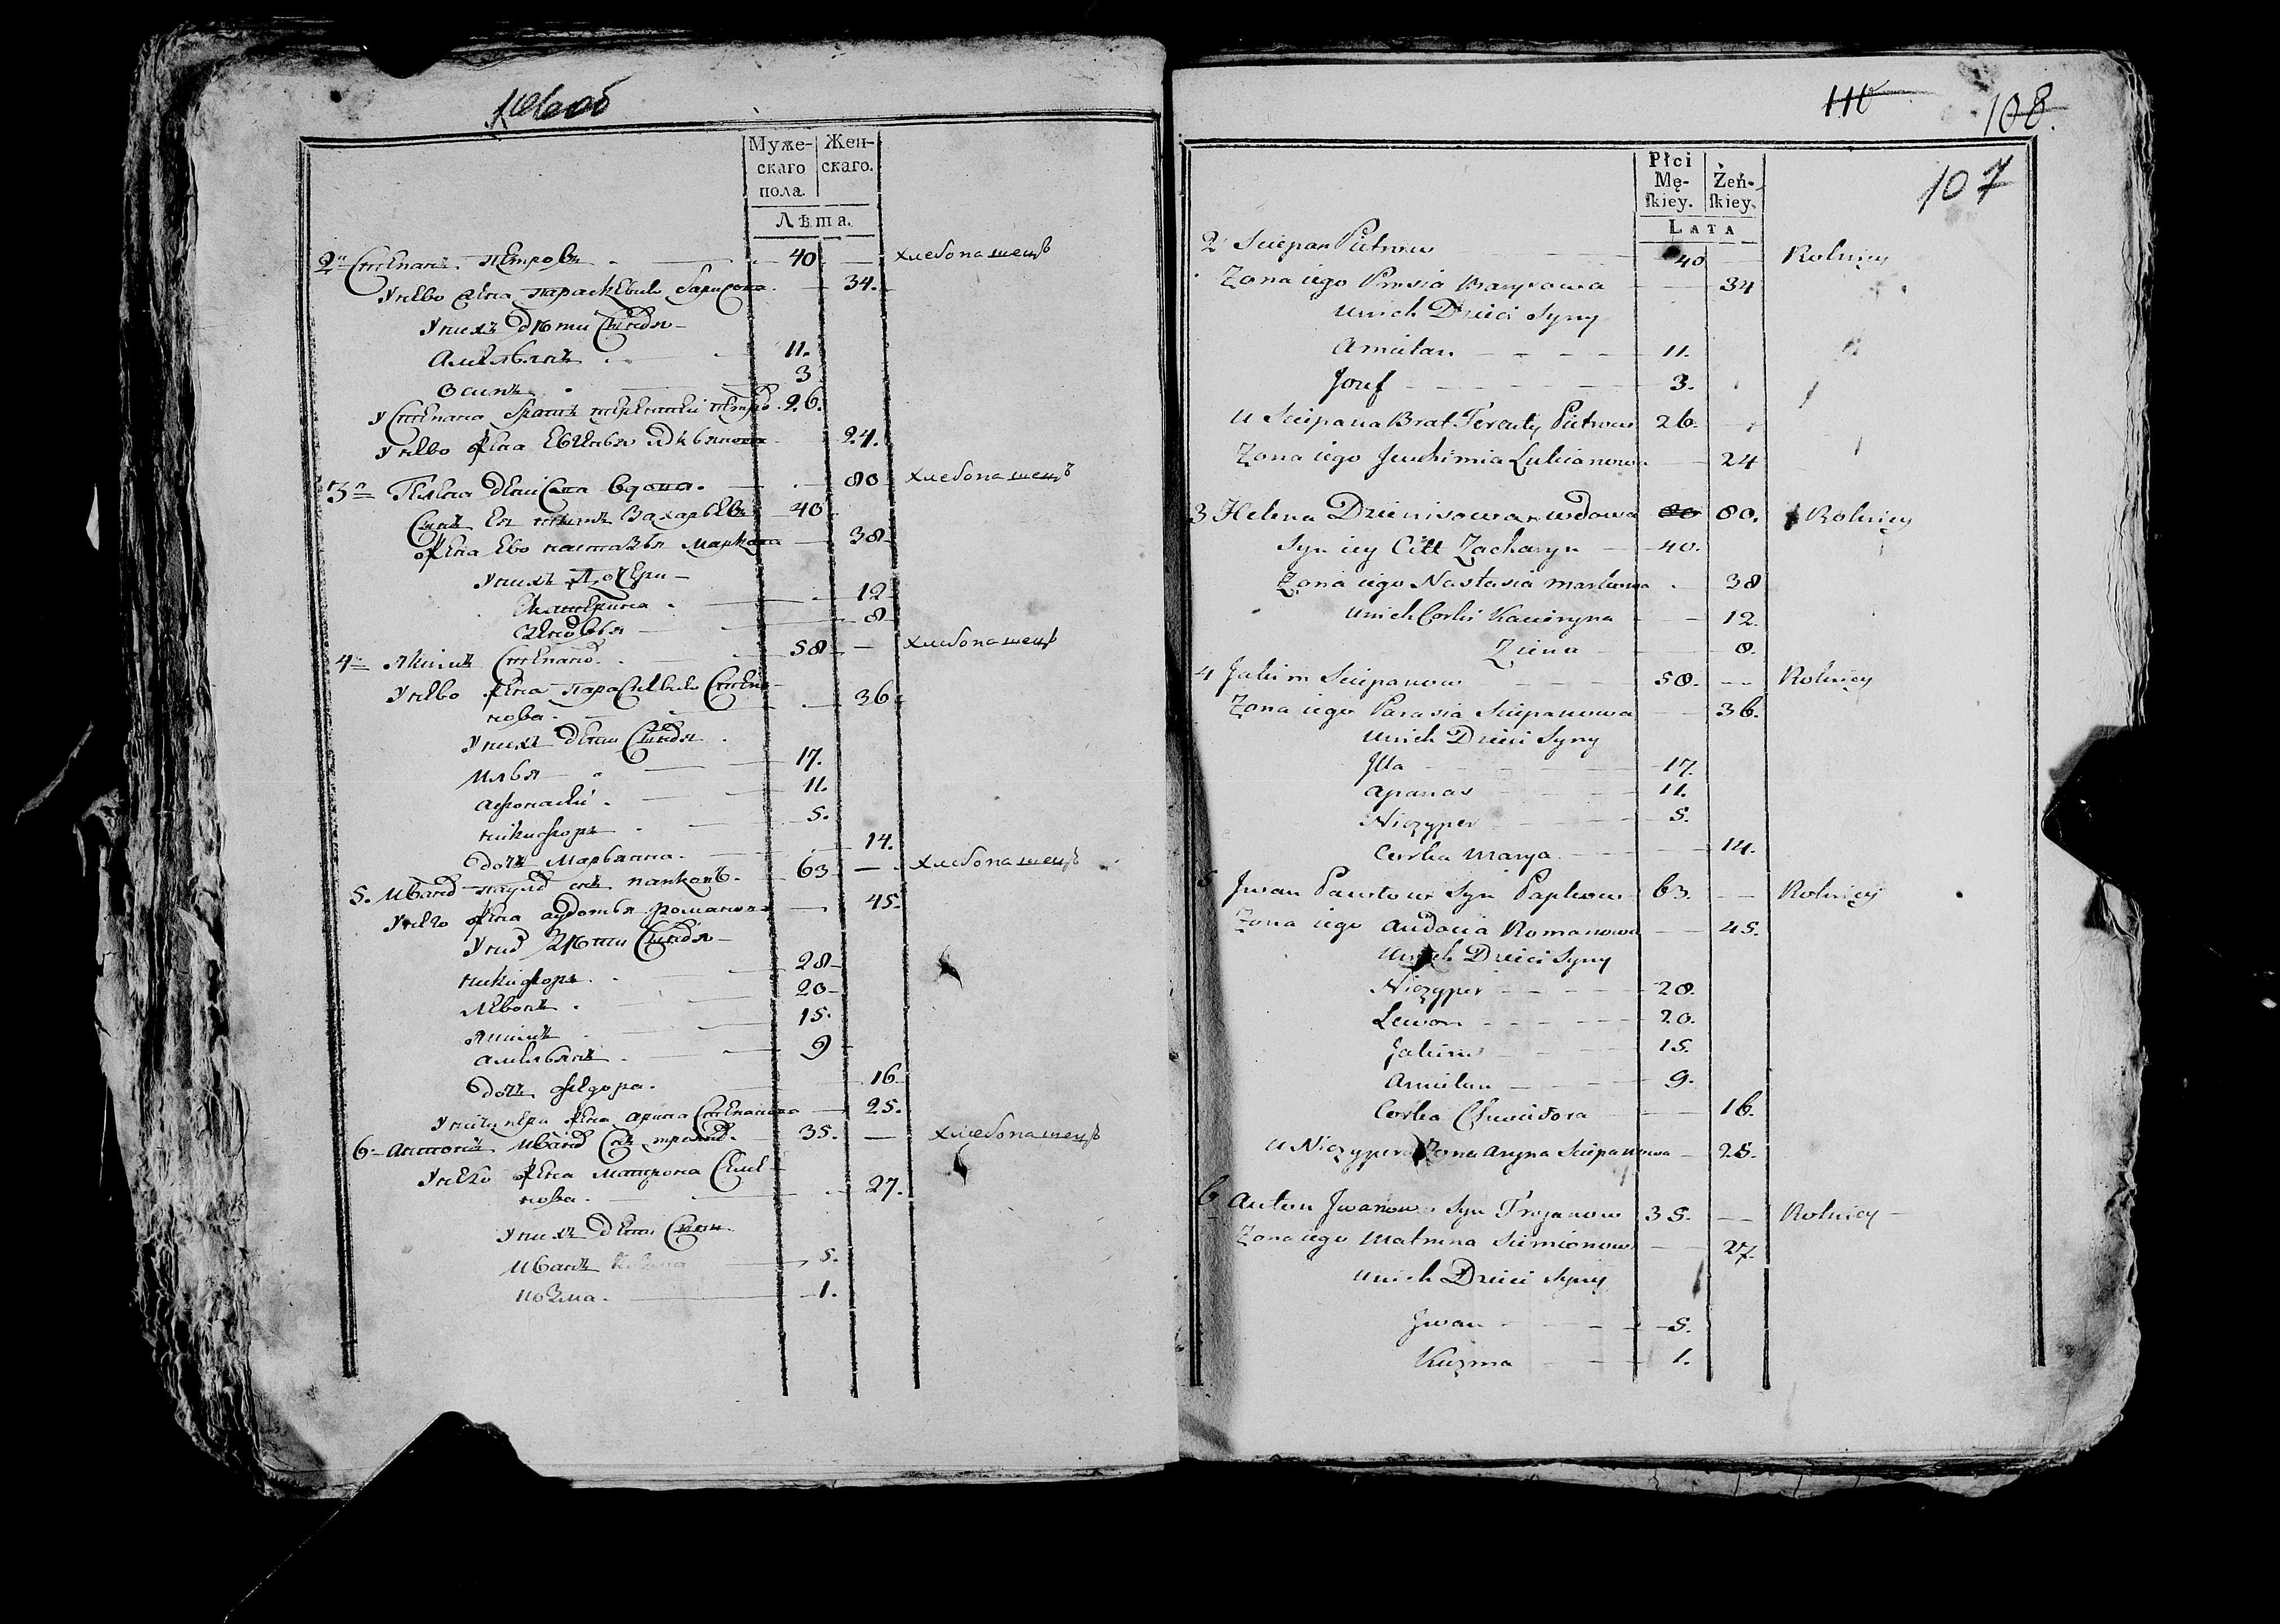 Муже-
скаго
пола.
Жен-
скаго.
Лѣта.
2 Степанъ Петровъ 40 — хлебопашецъ
У нево жена Параскевья Барисова 34.
У нихъ дѣти
Амельянъ 11.
Осипъ 3
У Степана братъ Терентей 26.
У нево жена 24.
3 вдова 80 хлебопашецъ
Сынъ ея Титъ Захарьевъ 40
жена ево Настазья Маркова 38
У нихъ дочери
Катерина 12
8
4 Якимъ 58 — хлебопашецъ
У нево жена Параскевья
нова 36
У нихъ дети
Илья 17.
Афонасей 11.
Никифоръ 5.
дочь Марьянна 14.
5. Иванъ 63 — хлебопашецъ
У него жена Авдотья Романова 45.
У них
Никифоръ 28
Левонъ 20
Якимъ 15.
Амельянъ 9
дочь Федора 16.
жена Арина Степанова 25.
6 Антонъ 35. — хлебопашецъ
У него жена Матрона Семе-
нова 27.
У нихъ дети
Иванъ 5.
Козма 1.
110 108.
107
Płci
Mę-
skiey.
Żeń-
skiey.
LATA
2 Sciepan Pietrow 40 Rolnicy
Zona iego Prosia Barysowa 34
u nich Dzieci Syny
Amielan 11.
Jozef 3.
u Sciepana Brat Terenty Pietrow 26.
Zona iego Jewhimia Lukianowa 24
3 Helena Dzienisowa wdowa 80 80. Rolnicy
Syn iey Citt Zacharyn 40.
Zona iego Nastasia Markowa 38
u nich Corki Kacieryna 12.
Zienia 8.
4 Jakim Sciepanow 58. Rolnicy
Zona iego Parasia Sciepanowa 36.
u nich Dzieci Syny
Jlla 17.
Apanas 11.
Niczyper 5.
Corka Marya 14.
5 Jwan Pawłow Syn Papkow 63. Rolnicy
Zona iego Audocia Romanowa 45.
u nich Dzieci Syny
Niczyper 28.
Lewon 20.
Jakim 15.
Amielan 9.
Corka Chwiedora 16.
u Niczypera Zona Aryna Sciepanowa 25.
6 Anton Jwanow Syn Trojanow 35. Rolnicy
Zona iego Matruna Siemionowa 27.
u nich Dzieci Syny
Jwan 5.
Kuzma 1.